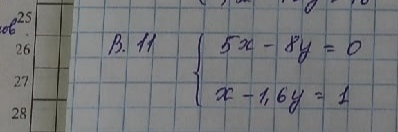 25
26
27
28
В. 11
5x - 8y = 0
x - 1,6y = 1